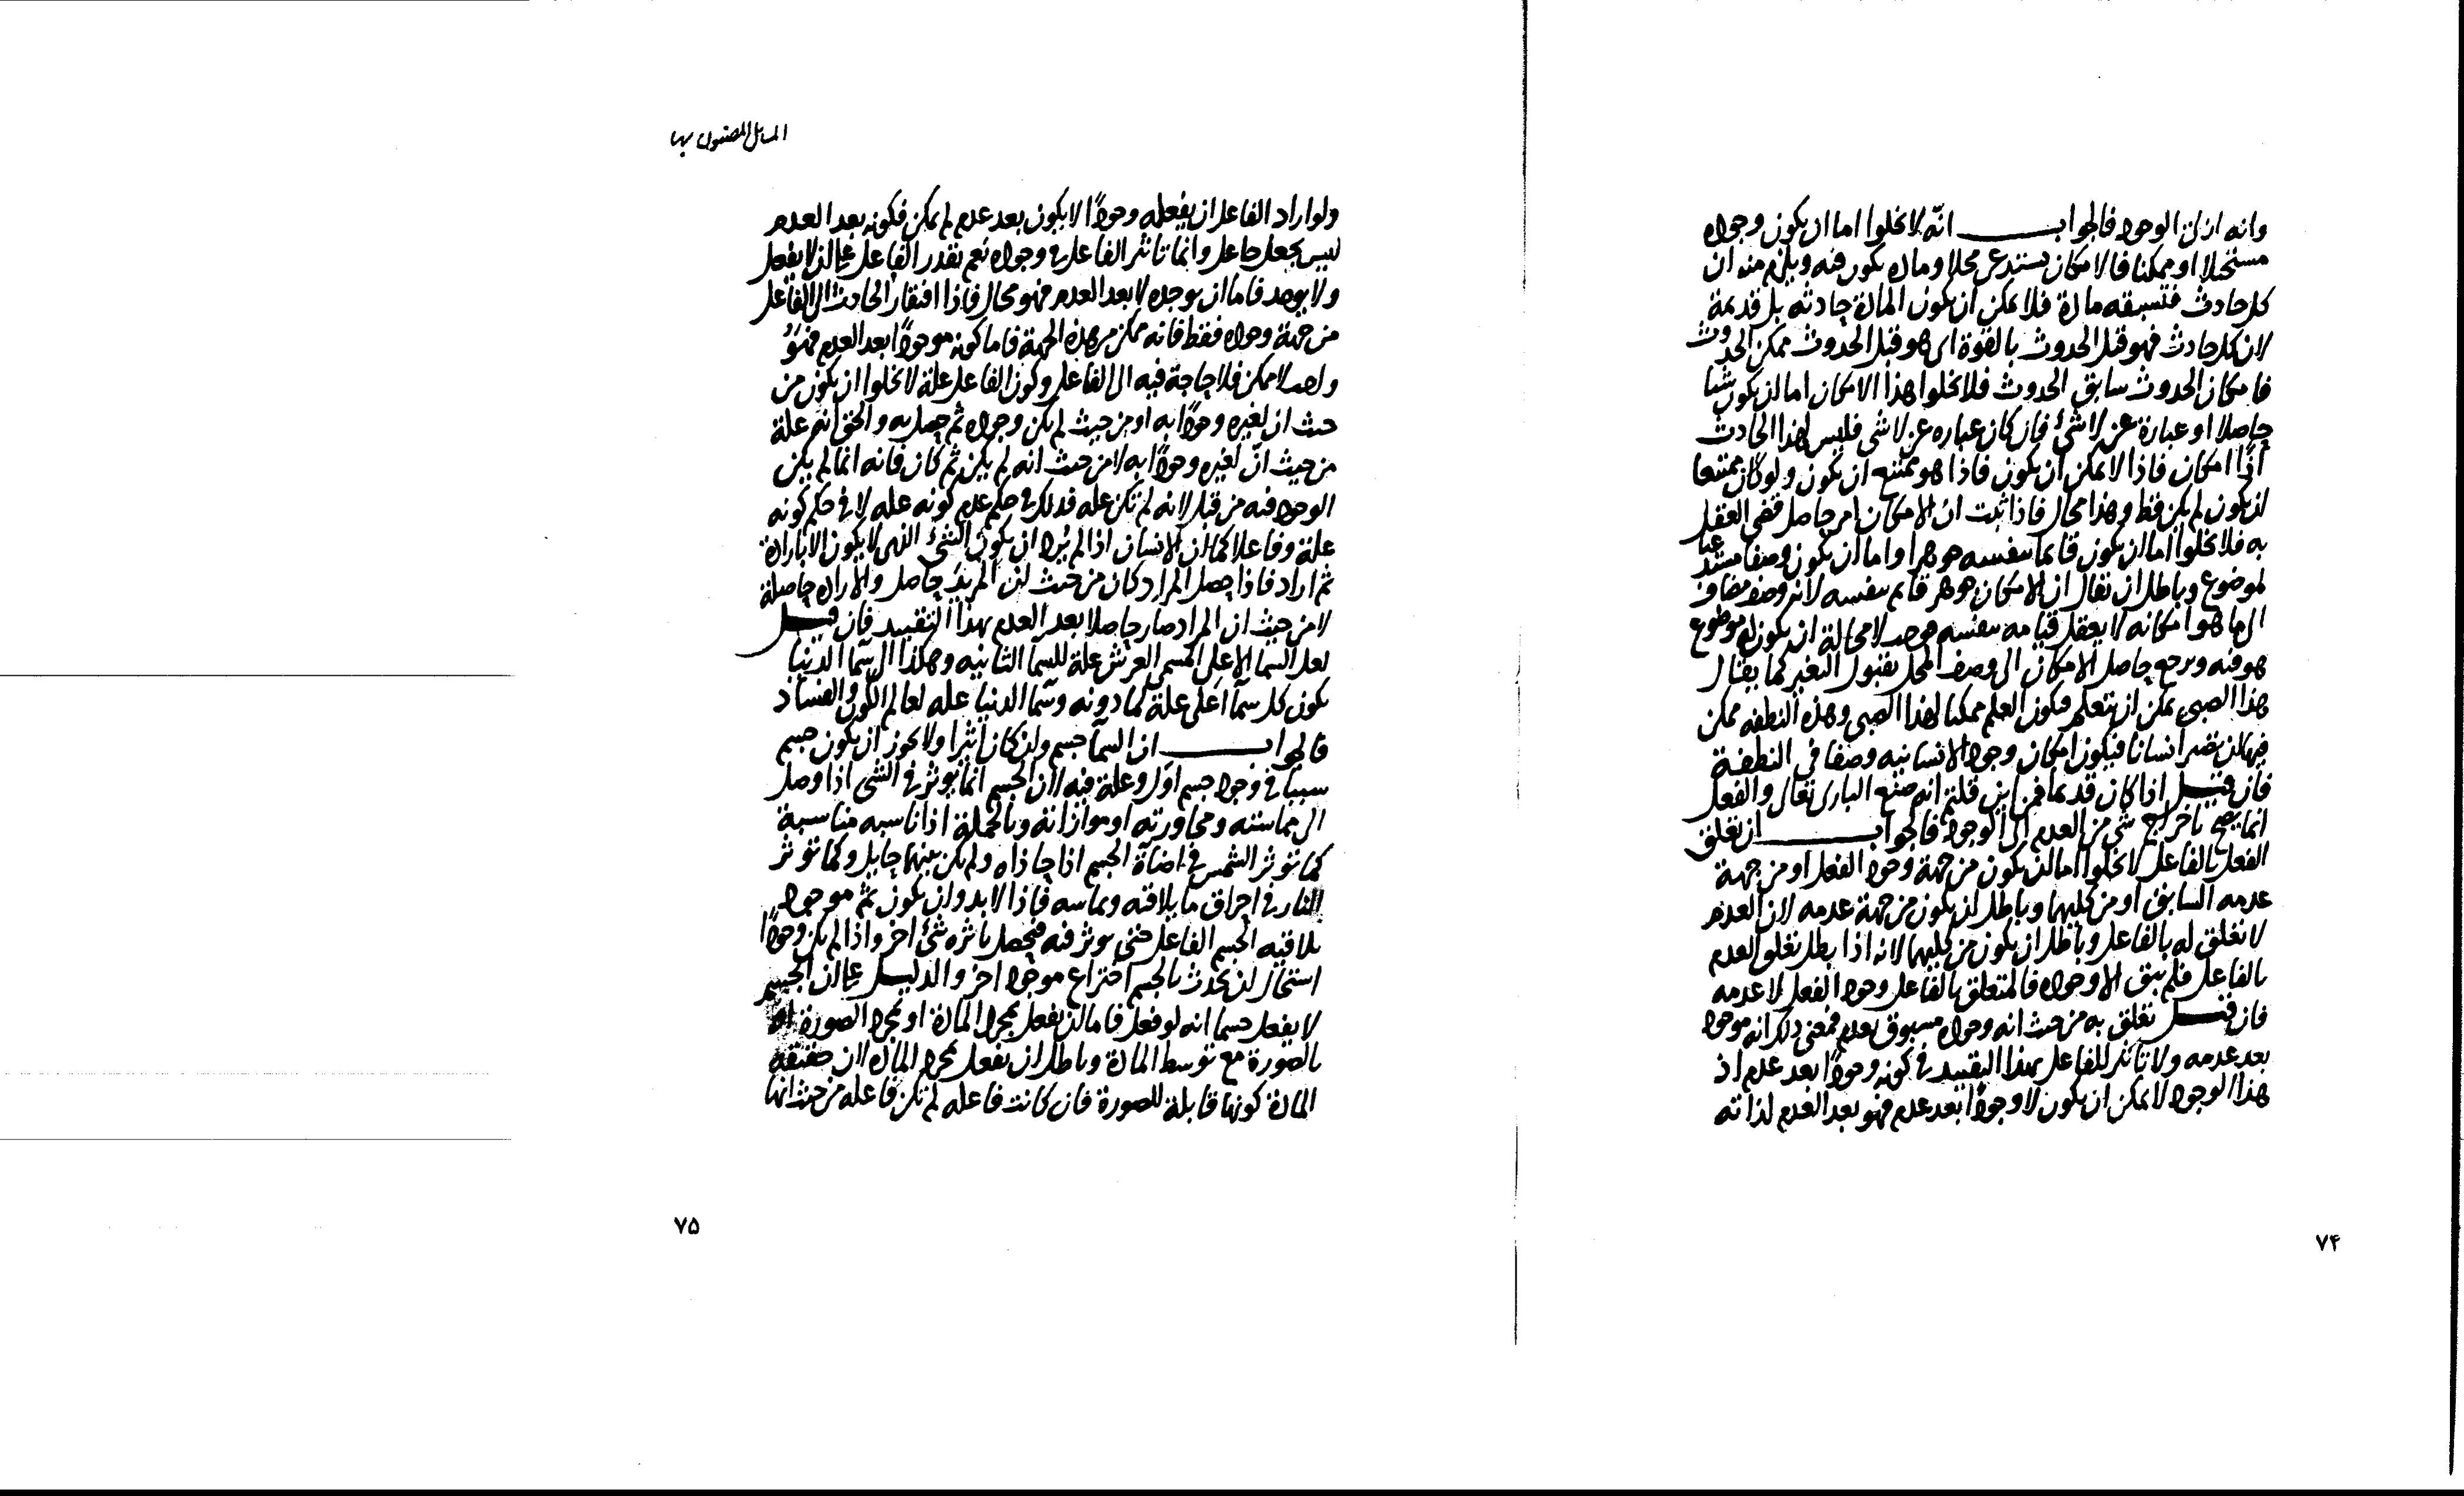 وانه ازلى الوجود فالجواب انّه لا يخلوا اما ان يكون وجوده
مستحيلا او ممكنا فالامكان يستدعى محلا وماده يكون فيه ويلزم منه ان
كل حادث فتسبقه مادة فلا يمكن ان يكون المادة حادثه بل قديمة
لان كل حادث فهو قبل الحدوث بالقوة اى هو قبل الحدوث ممكن الحدوث
فامكان الحدوث سابق الحدوث فلا يخلوا هذا الامكان اما ان يكون شيا
حاصلا او عبارة عن لا شئ فان كان عباره عن لا شى فليس لهذا الحادث
اذًا امكان فاذا لا يمكن ان يكون فاذا هو ممتنع ان يكون ولو كان ممتنعا
ان يكون لم يكن قط وهذا محال فاذا ثبت ان الامكان امر حاصل قضى العقل
به فلا يخلوا اما ان يكون قايما بنفسه جوهرا واما ان يكون وصفا مستدعيا
لموضوع وباطل ان يقال ان الامكان جوهر قايم بنفسه لانه وصف مضاف
الى ما هو امكانه لا يعقل قيامه بنفسه فوجد لا محالة ان يكون له موضوع
هو فيه ويرجع حاصل الامكان الى وصف المحل بقبول التغير كما يقال
هذا الصبى يمكن ان يتعلم فيكون العلم ممكنا لهذا الصبى وهذه النطفه ممكن
فيها ان يصير انسانا فيكون امكان وجود الانسانيه وصفا فى النطفة
فان قيل اذا كان قديما فمن اين قلتم انه صنع البارى تعالى والفعل
انما يصح باخراج شى من العدم الى الوجود فالجواب ان تعلق
الفعل بالفاعل لا يخلوا اما ان يكون من جهة وجود الفعل او من جهة
عدمه السابق او من كليهما وباطل ان يكون من جهة عدمه لان العدم
لا تعلق له بالفاعل وباطل ان يكون من كليهما لانه اذا بطل تعلق العدم
بالفاعل فلم يبق الا وجوده فالمتعلق بالفاعل وجود الفعل لا عدمه
فان قيل تعلق به من حيث انه وجود مسبوق بعدم فمعنى ذلك انه موجود
بعد عدمه ولا تاثير للفاعل بهذا التقييد فى كونه وجودًا بعد عدم اذ
هذا الوجود لا يمكن ان يكون الا وجودًا بعد عدم فهو بعد العدم لذاته
۷۴
المسائل المضنون بها
ولو اراد الفاعل ان يفعله وجودًا لا يكون بعد عدم لم يمكن فكونه بعد العدم
ليس بجعل جاعل وانما تاثير الفاعل فى وجوده نعم يقدر الفاعل على ان لا يفعل
ولا يوجد فاما ان يوجده لا بعد العدم فهو محال فاذا افتقار الحادث الى الفاعل
من جهة وجوده فقط فانه ممكن من هذه الجهة فاما كونه موجودًا بعد العدم فهوَ
واجب لا ممكن فلا حاجة فيه الى الفاعل وكون الفاعل علة لا يخلوا ان يكون من
حيث ان لغيره وجودًا به او من حيث لم يكن وجوده ثم حصل به والحق انه علة
من حيث انّ لغيره وجودًا به لا من حيث انه لم يكن ثم كان فانه انما لم يكن
الوجود فيه من قبل لانه لم تكن عله فذلك فى حكم عدم كونه عله لا فى حكم كونه
علة وفاعلا كما ان الانسان اذا لم يُرد ان يكون الشئ الذى لا يكون الا بارادة
ثم اراد فاذا حصل المراد كان من حيث ان المريد حاصل والاراده حاصلة
لا من حيث ان المراد صار حاصلا بعد العدم بهذا التقييد فان قيل
لعل السما الاعلى المسمى العرش علة للسما الثانيه وهكذا الى السّما الدنيا
يكون كل سمآ اعلى علة لما دونه وسما الدنيا عله لعالم الكون والفساد
فالجواب ان السمآ جسم وان كان اثيرا ولا يجوز ان يكون جسم
سببا فى وجود جسم اوّل وعلة فيه لان الجسم انما يوثر فى الشى اذا وصل
الى مماسته ومجاورته او موازاته وبالجملة اذا ناسبه مناسبة
كما تؤثر الشمس فى اضآة الجسم اذا حاذاه ولم يكن بينهما حايل وكما تؤثر
النار فى احراق ما يلاقيه ويماسه فاذا لا بد وان يكون ثمّ موجود
يلاقيه الجسم الفاعل حتى يوثر فيه فيحصل باثره شئ اخر واذا لم يكن وجودًا
استحال ان يحدث بالجسم اختراع موجود اخر والدليل على ان الجسم
لا يفعل جسما انه لو فعل فاما ان يفعل بمجرد المادة او بمجرد الصورة او
بالصورة مع توسط المادة وباطل ان يفعل بمجرد الماده لان حقيقه
المادة كونها قابلة للصورة فان كانت فاعله لم تكن فاعله من حيث انها
۷۵